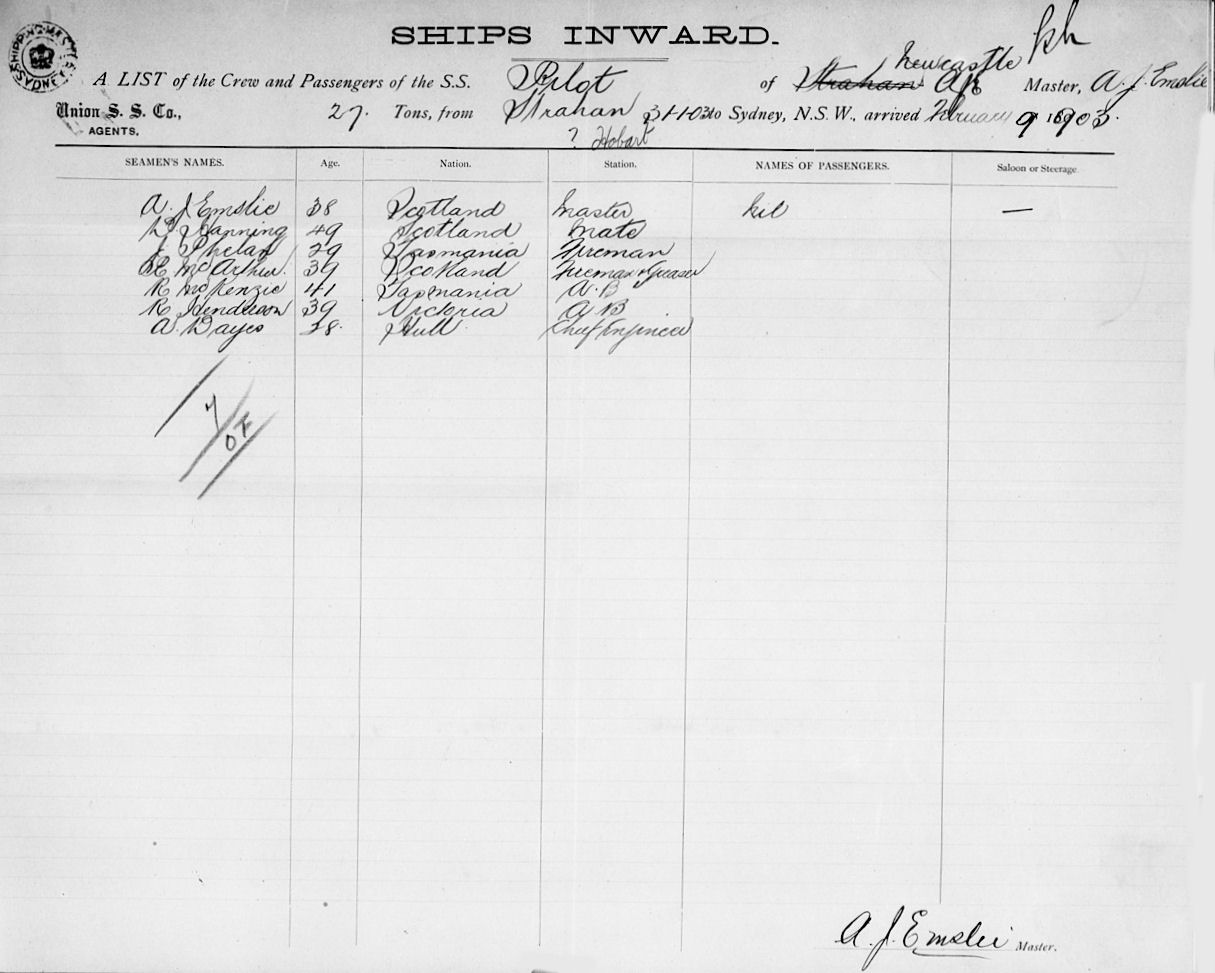 SHIPPING MASTER SYDNEY
SHIPS INWARD.
Newcastle
A LIST of the Crew and Passengers of the S.S. Pilot of Strahan Master, A. J. Emslie
Union S. S. Co., 27. Tons, from Strahan 31-1-03 to Sydney, N.S.W., arrived February 9 1903.
AGENTS.
? Hobart
SEAMEN'S NAMES. Age. Nation. Station. NAMES OF PASSENGERS. Saloon or Steerage
A. J Emslie 38 Scotland Master Nil —
Hanning 49 Scotland Mate
J. Phelan 29 Tasmania Fireman
E McArthur. 39 Scotland Fireman & Greaser
R McKenzie 41 Tasmania A.B
R Henderson 39 Victoria A B
A. Dayes 28. Hull Chief Engineer
7
A. J. Emslie Master.